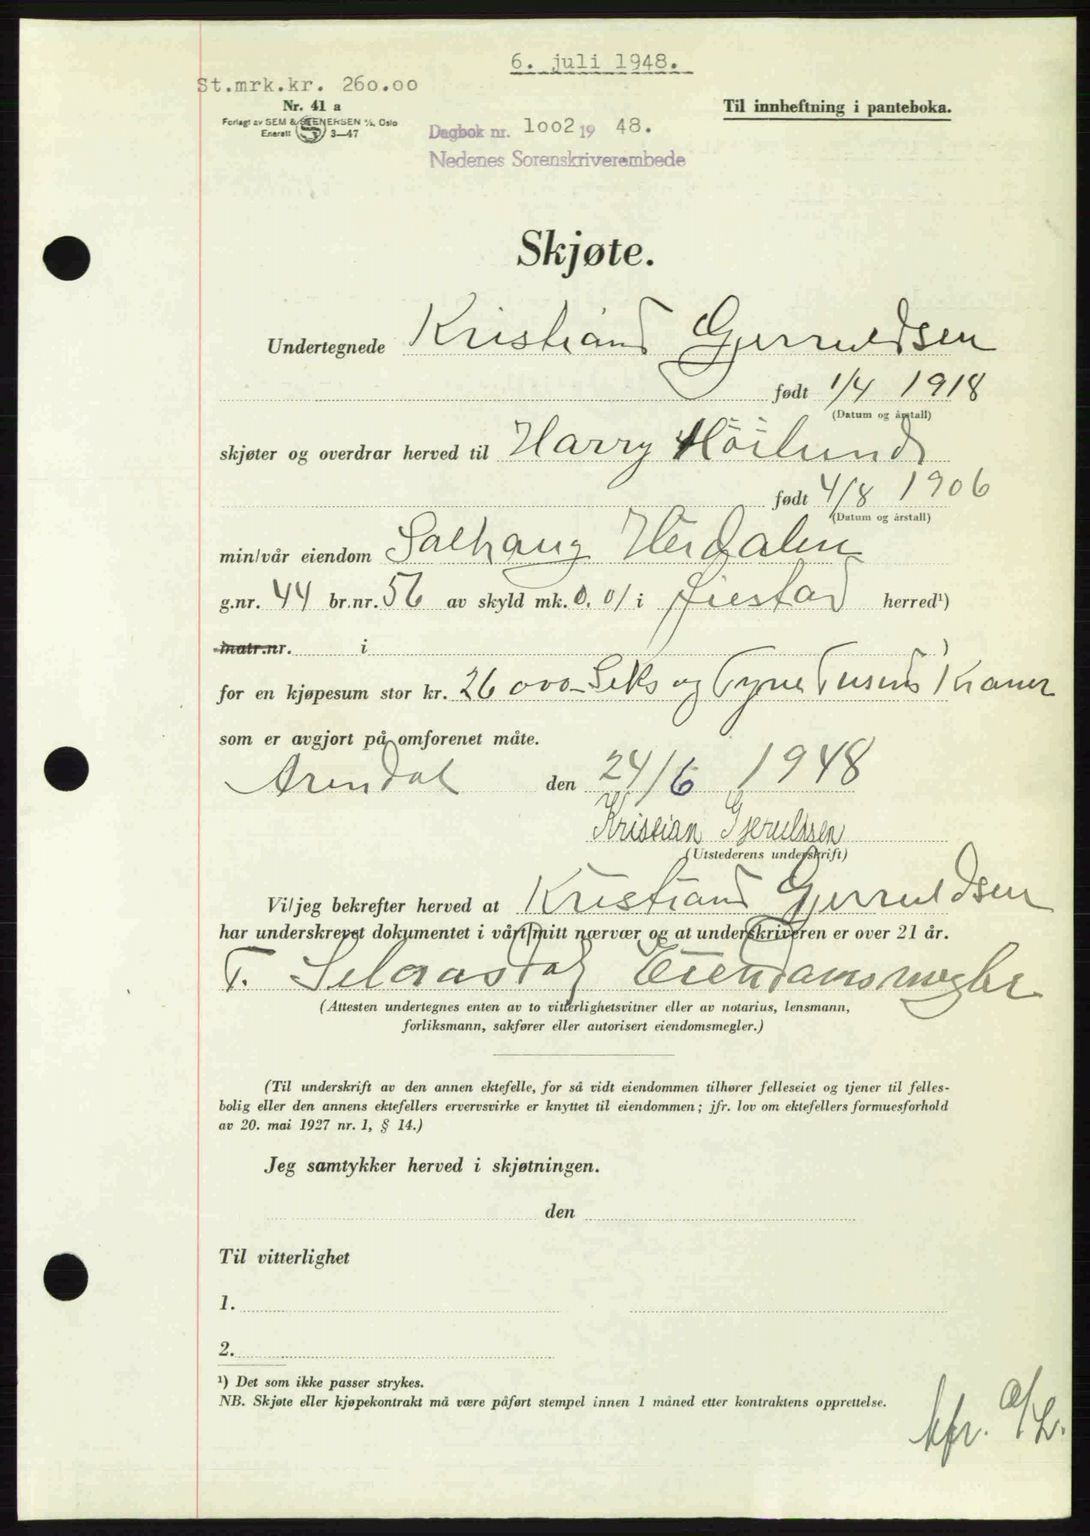 6. juli 1948.
St.mrk.kr. 260.00
Nr. 41 a
Til innheftning i panteboka.
Forlagt av SEM & STENERSEN A/S, Oslo
Enerett 3—47
Dagbok nr. 1002 19 48.
Nedenes Sorenskriverembede
Skjøte.
Undertegnede Kristiand Gjerruldsen
født 1/4 1918
(Datum og årstall)
skjøter og overdrar herved til Harry Höilund
født 4/8 1906
(Datum og årstall)
min/vår eiendom Solhaug
g.nr. 44 br.nr. 56 av skyld mk. 0.01 i Øiestad herred¹)
matr.nr. i
for en kjøpesum stor kr. 26 000 - Seks og Tyve Tusend Kroner
som er avgjort på omforenet måte.
Arendal den 24/6 1948
Kristian Gjerulssen
(Utstederens underskrift)
Vi/jeg bekrefter herved at Kristiand Gjerruldsen
har underskrevet dokumentet i vårt/mitt nærvær og at underskriveren er over 21 år.
T. Selaasdal Eiendomsmegler
(Attesten undertegnes enten av to vitterlighetsvitner eller av notarius, lensmann,
forliksmann, sakfører eller autorisert eiendomsmegler.)
(Til underskrift av den annen ektefelle, for så vidt eiendommen tilhører felleseiet og tjener til felles-
bolig eller den annens ektefellers ervervsvirke er knyttet til eiendommen; jfr. lov om ektefellers formuesforhold
av 20. mai 1927 nr. 1, § 14.)
Jeg samtykker herved i skjøtningen.
den
Til vitterlighet
1.
2.
¹) Det som ikke passer strykes.
NB. Skjøte eller kjøpekontrakt må være påført stempel innen 1 måned etter kontraktens opprettelse.
kfr.